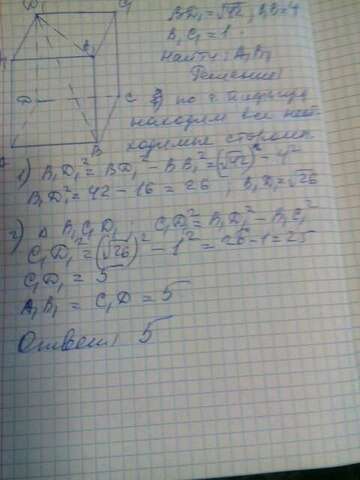 D₁ C₁
BD₁ = √42, BB₁ = 4
B₁C₁ = 1
B₁
Найти: A₁B₁
Решение:
D C
по т. Пифагора
находим все необ-
B
ходимые стороны
1) B₁D₁² = BD₁² - BB₁² = (√42)² - 4²
B₁D₁² = 42 - 16 = 26 ; B₁D₁ = √26
2) Δ B₁C₁D₁ ; C₁D₁² = B₁D₁² - B₁C₁²
C₁D₁² = (√26)² - 1² = 26 - 1 = 25
C₁D₁ = 5
A₁B₁ = C₁D = 5
Ответ: 5